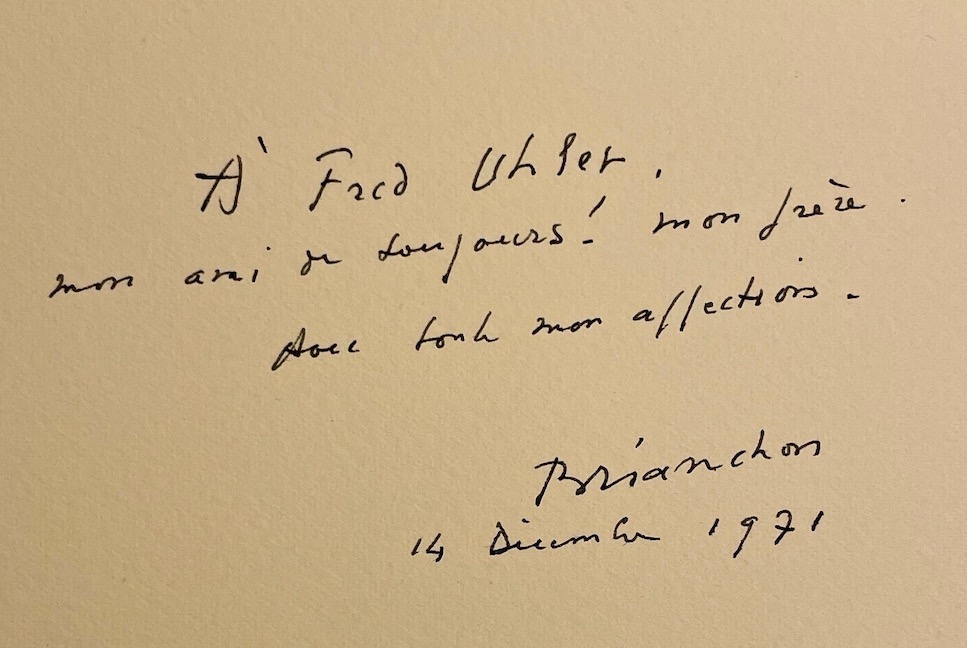 À Fred Uhler.
mon ami de toujours! mon frère.
Avec toute mon affection.
Brianchon
14 Décembre 1971